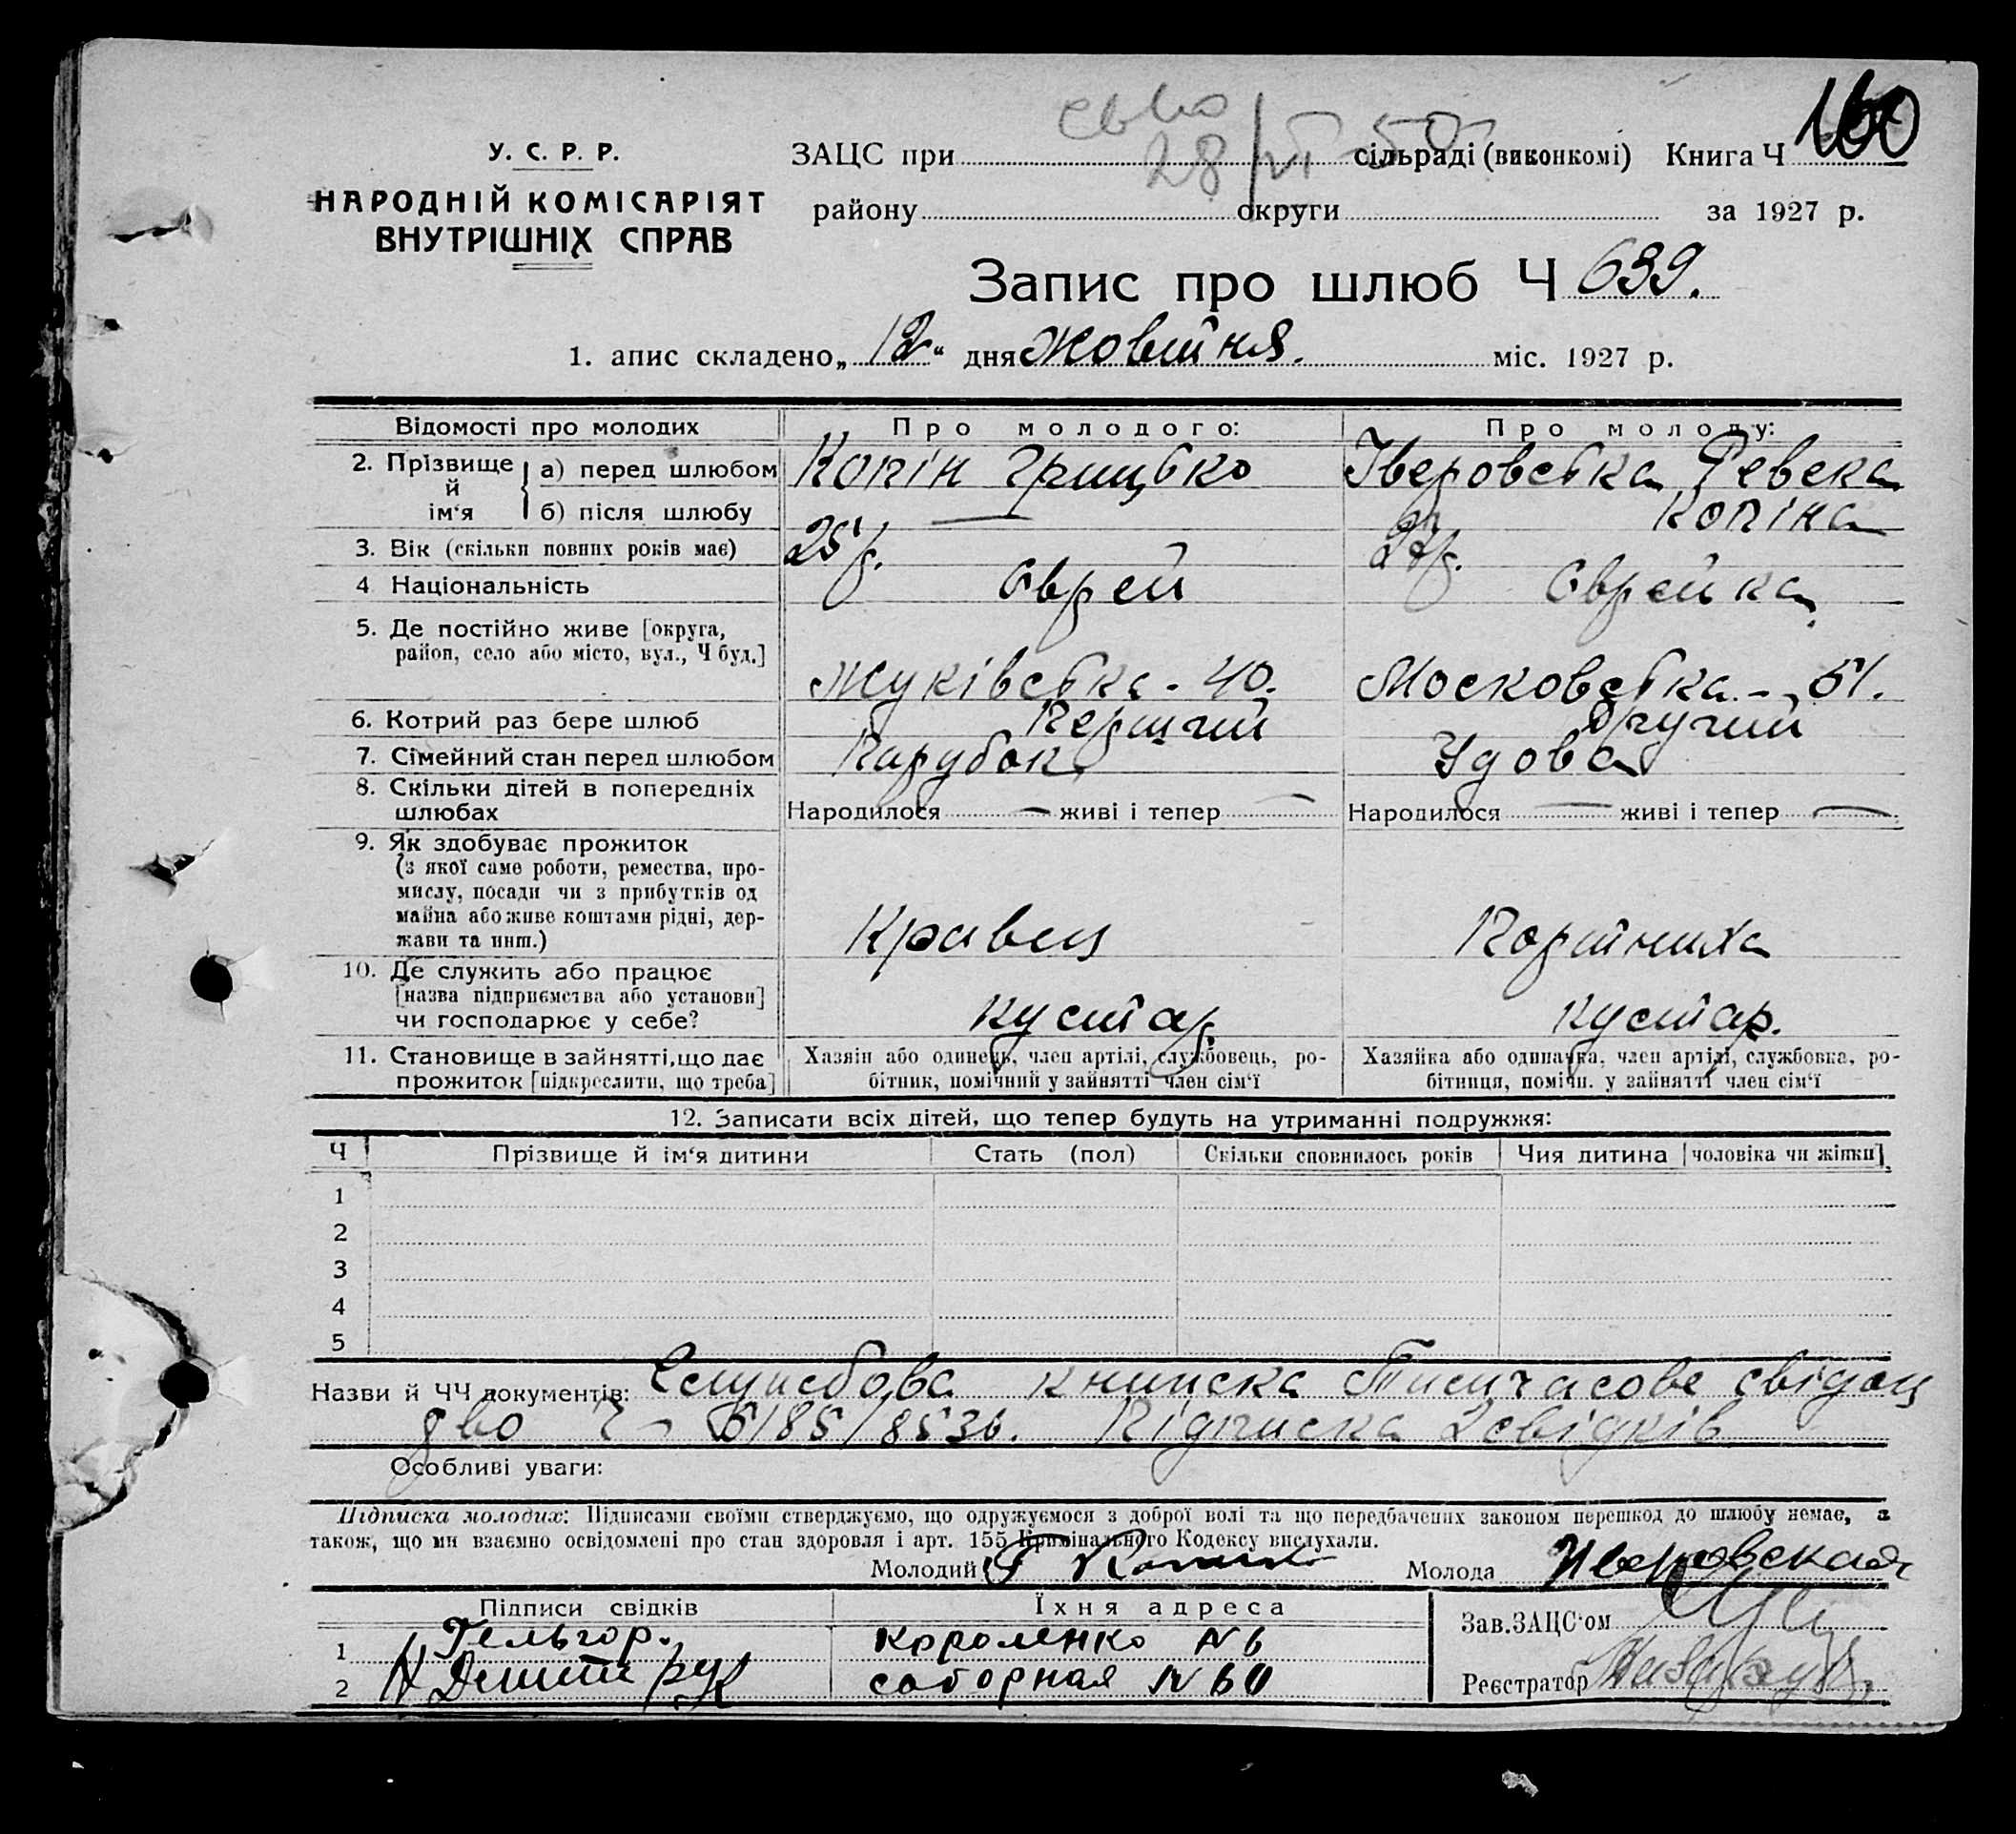 сьво
28/VI-50
160
У. С. Р. Р.
НАРОДНІЙ КОМІСАРІЯТ
ВНУТРІШНІХ СПРАВ
ЗАЦС при сільраді (виконкомі) Книга Ч
району округи за 1927 р.
Запис про шлюб Ч 639.
1. апис складено „12“ дня Жовтня. міс. 1927 р.
Відомості про молодих Про молодого: Про молоду:
2. Прізвище й ім‘я а) перед шлюбом Копін Грицько Іверовська Ревека
б) після шлюбу — Копіна
3. Вік (скільки повних років має) 25 р. 27 р.
4 Національність Єврей Єврейка
5. Де постійно живе [округа,
район, село або місто, вул., Ч буд.] Жуківська - 40. Московська - 51.
6. Котрий раз бере шлюб Перший Другий
7. Сімейний стан перед шлюбом Парубок Удова
8. Скільки дітей в попередніх
шлюбах Народилося — живі і тепер — Народилося — живі і тепер —
9. Як здобуває прожиток
(з якої саме роботи, ремества, про-
мислу, посади чи з прибутків од
майна або живе коштами рідні, дер-
жави та инш.) Кравец Портниха
10. Де служить або працює
[назва підприємства або установи]
чи господарює у себе? кустар кустар.
11. Становище в зайнятті, що дає
прожиток [підкреслити, що треба]
Хазяін або одинець, член артілі, службовець, ро-
бітник, помічний у зайнятті член сім‘ї
Хазяйка або одиначка, член артілі, службовка, ро-
бітниця, помічн. у зайнятті член сім‘ї
12. Записати всіх дітей, що тепер будуть на утриманні подружжя:
Ч Прізвище й ім‘я дитини Стать (пол) Скільки сповнилось років Чия дитина [чоловіка чи жінки]
1
2
3
4
5
Назви й ЧЧ документів: Службова книжка Тимчасове свідоц
дво Ч 5/85/8536. Підписка 2 свідків
Особливі уваги:
Підписка молодих: Підписами своїми стверджуємо, що одружуємося з доброї волі та що передбачених законом перешкод до шлюбу немає, а
також, що ми взаємно освідомлені про стан здоровля і арт. 155 Кримінального Кодексу вислухали.
Молодий Г Копин Молода Иверовская
Підписи свідків Їхня адреса Зав. ЗАЦС‘ом
1 Гельгор. Короленко №6
2 соборная №60 Реєстратор